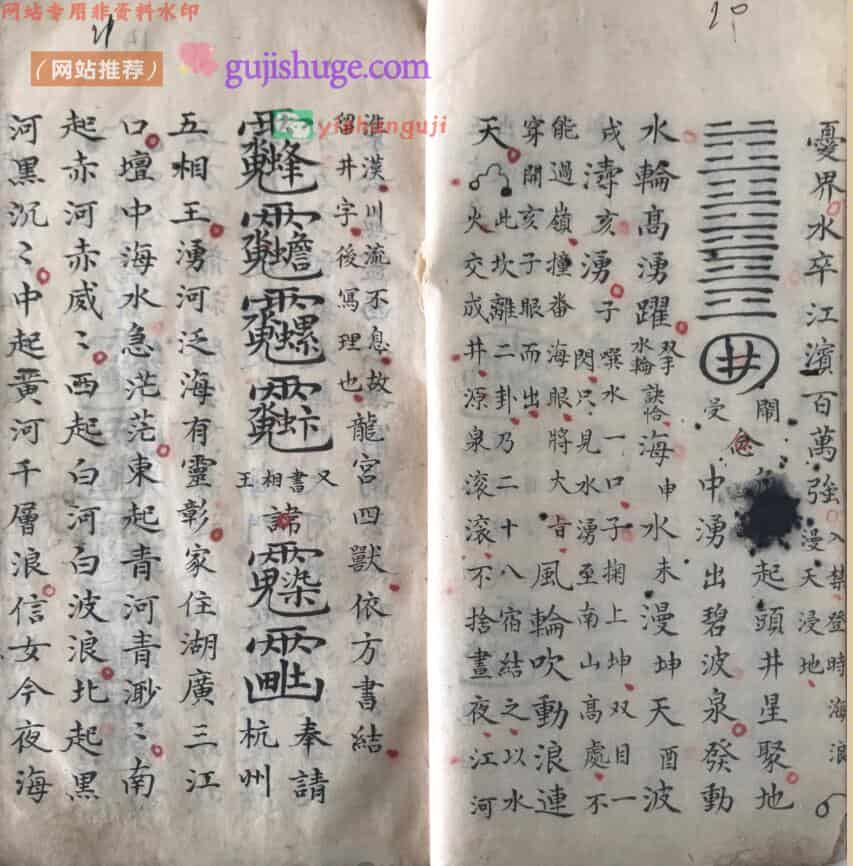 网站专用非资料水印
（网站推荐）
gujishuge.com
yishanguji
憂界水卒江濱百萬強
入禁登時海浪
漫天浸地
井
鬧
念
起頭井星聚地
中湧出碧波泉發動
水輪髙湧躍
双手訣
水輪
海申水未漫坤天酉波
戌濤亥湧
子噀水一口子掬上坤双目一
閃只見水湧至南山髙處不
能過嶺撞畨海眼將大
穿開亥子眼而出
風輪吹動浪連
天
此坎離二卦乃二十八宿結之以水
火交成井源泉滚滚不捨晝夜江河
淮漢川流不息故
留井字後寫理也
龍宮四獸依方書結
又書相王
諸
奉請
杭州
五相王湧河泛海有靈彰家住湖廣三江
口壇中海水急茫茫東起青河青渺〻南
起赤河赤威〻西起白河白波浪北起黑
河黑沉〻中起黃河千層浪信女今夜海